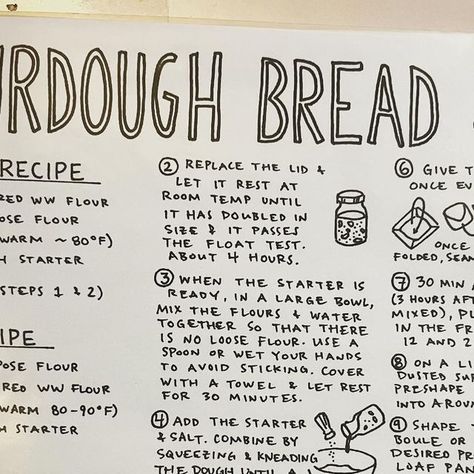 RDOUGH BREAD
RECIPE
WW FLOUR
FLOUR
WARM ~ 80°F)
STARTER
STEPS 1 & 2)
FLOUR
WW FLOUR
WARM 80-90°F)
STARTER
② REPLACE THE LID &
LET IT REST AT
ROOM TEMP UNTIL
IT HAS DOUBLED IN
SIZE & IT PASSES
THE FLOAT TEST.
ABOUT 4 HOURS.
③ WHEN THE STARTER IS
READY, IN A LARGE BOWL,
MIX THE FLOURS & WATER
TOGETHER SO THAT THERE
IS NO LOOSE FLOUR. USE A
SPOON OR WET YOUR HANDS
TO AVOID STICKING. COVER
WITH A TOWEL & LET REST
FOR 30 MINUTES.
④ ADD THE STARTER
& SALT. COMBINE BY
SQUEEZING & KNEADING
THE DOUGH UNTIL
⑥ GIVE
ONCE
ONCE
FOLDED,
⑦ 30 MIN
(3 HOURS
MIXED),
IN THE
12 AND 2
⑧ ON A
DUSTED
PRESHAPE
INTO A
⑨ SHAPE
BOULE OR
DESIRED
LOAF PAN